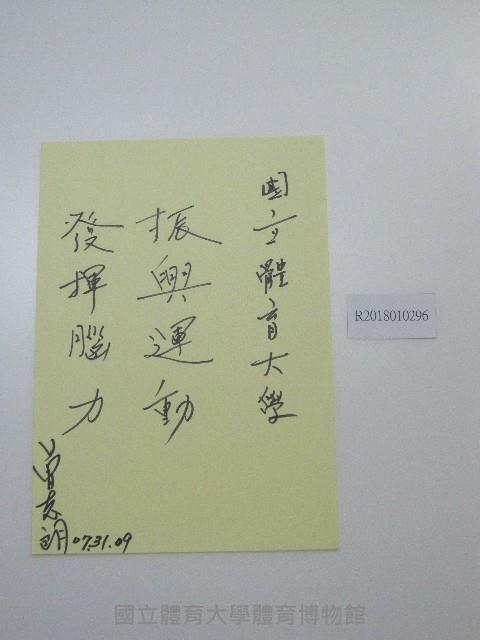 國立體育大學
振興運動
發揮腦力
曾志朗 07.31.09
R2018010296
國立體育大學體育博物館